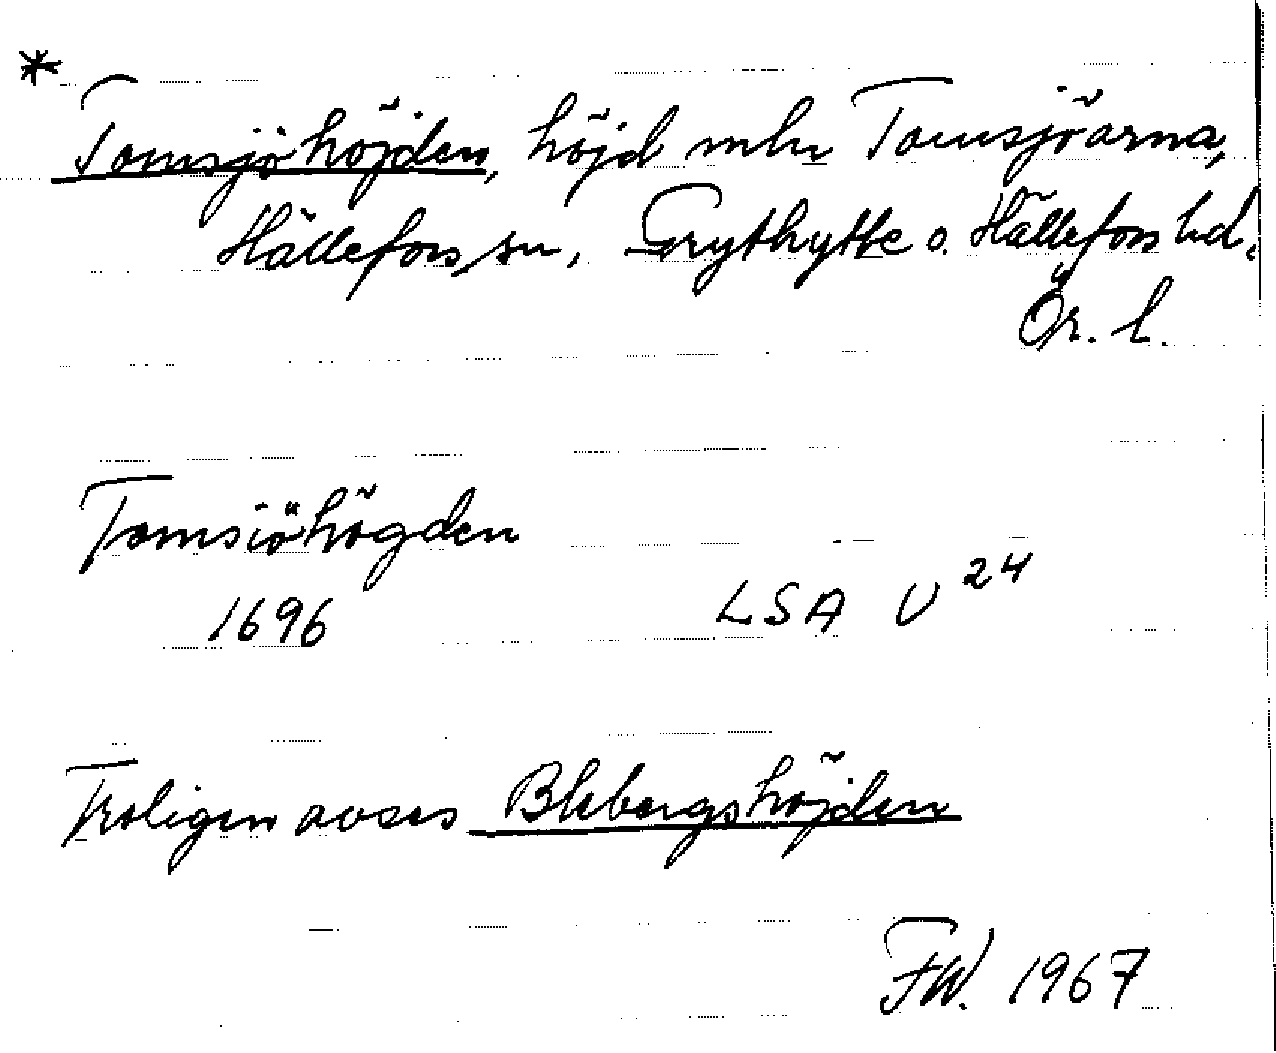 *
Tomsjöhöjden, höjd mln Tomsjöarna,
Hällefors sn, Grythytte o. Hällefors hd,
Ör. l.
Tomsiöhögden
1696 LSA U 24
Troligen avses Blebergshöjden
FW. 1967